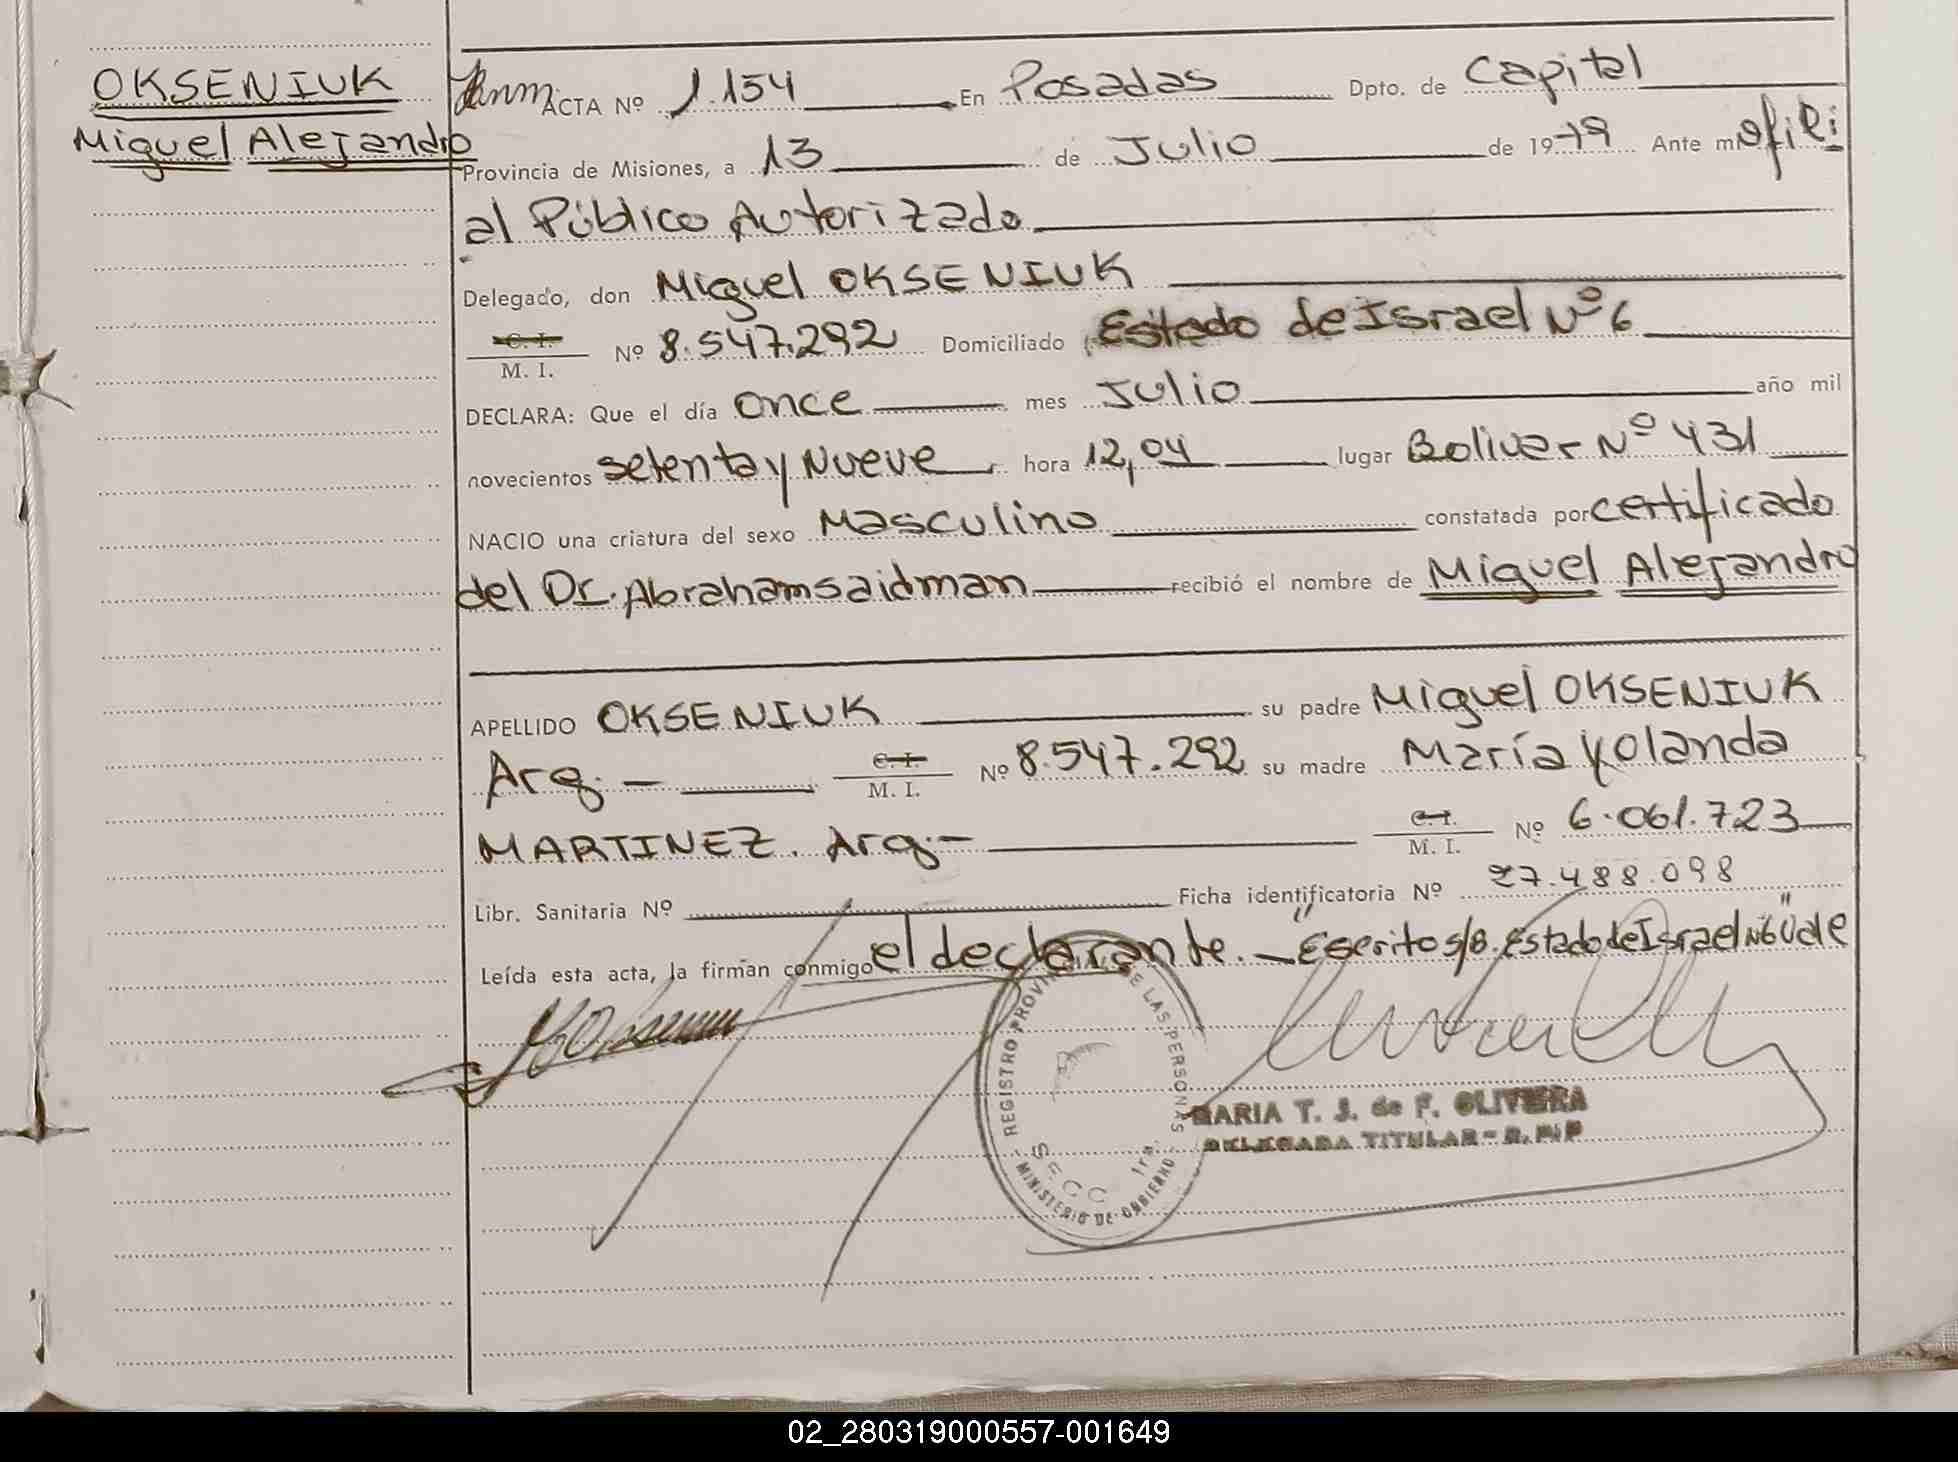 OKSENIUK
Miguel Alejandro
ACTA Nº 1.154 En Posadas Dpto. de Capital
Provincia de Misiones, a 13 de Julio de 1979 Ante mi ofici
al Público Autorizado
Delegado, don Miguel OKSENIUK
C. I. M. I. Nº 8.547.292 Domiciliado Estado de Israel Nº 6
DECLARA: Que el día once mes Julio año mil
novecientos setenta y Nueve hora 12,04 lugar Bolivar Nº 431
NACIO una criatura del sexo Masculino constatada por certificado
del Dr. Abraham saidman recibió el nombre de Miguel Alejandro
APELLIDO OKSENIUK su padre Miguel OKSENIUK
Arg.- C. I. M. I. Nº 8.547.292 su madre María Yolanda
MARTINEZ. Arg.- C. I. M. I. Nº 6.061.723
Libr. Sanitaria Nº Ficha identificatoria Nº 27.488.098
Leída esta acta, la firman conmigo el declarante. - "Escrito s/b. Estado de Israel Nº6" Vale
REGISTRO PROVINCIAL DE LAS PERSONAS
SECC 1ra.
- MINISTERIO DE GOBIERNO -
MARIA T. J. de F. OLIVEIRA
DELEGADA TITULAR - R. P. P
02_280319000557-001649